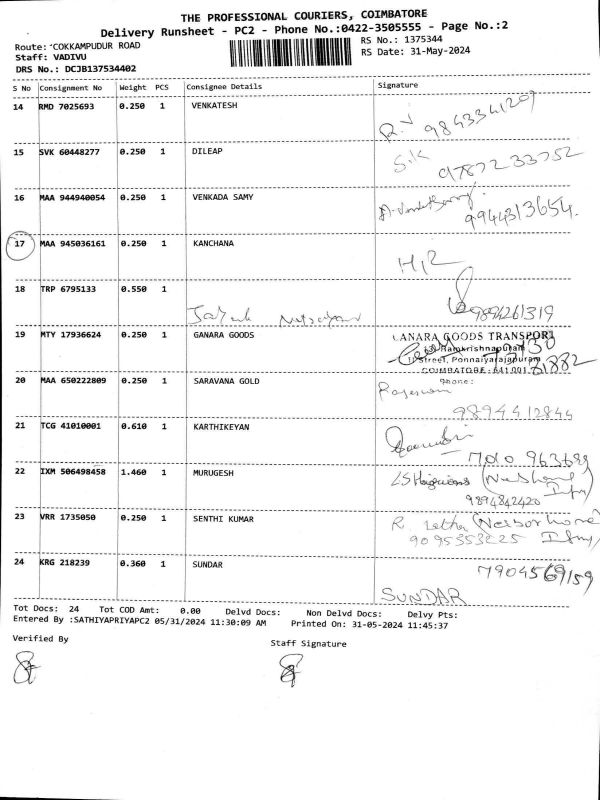 THE PROFESSIONAL COURIERS, COIMBATORE
Delivery Runsheet - PC2 - Phone No.:0422-3505555 - Page No.:2
Route: COKKAMPUDUR ROAD
RS No.: 1375344
Staff: VADIVU
RS Date: 31-May-2024
DRS No.: DCJB137534402
S No Consignment No Weight PCS Consignee Details Signature
14 RMD 7025693 0.250 1 VENKATESH
9843341209
15 SVK 60448277 0.250 1 DILEAP
S.K
9787233752
16 MAA 944940054 0.250 1 VENKADA SAMY
9944313654.
17 MAA 945036161 0.250 1 KANCHANA
H12
18 TRP 6795133 0.550 1
9894261319
19 MTY 17936624 0.250 1 GANARA GOODS
CANARA GOODS TRANSPORT
Ramkrishnapuram
Street, Ponnaiyarajapuram
COIMBATORE - 641 001
20 MAA 650222809 0.250 1 SARAVANA GOLD
Phone:
Rajeswari
9894412844
21 TCG 41010001 0.610 1 KARTHIKEYAN
22 IXM 506498458 1.460 1 MURUGESH
9894842420
23 VRR 1735050 0.250 1 SENTHI KUMAR
R. Letha
24 KRG 218239 0.360 1 SUNDAR
7904569159
SUNDAR
Tot Docs: 24 Tot COD Amt: 0.00 Delvd Docs: Non Delvd Docs: Delvy Pts:
Entered By :SATHIYAPRIYAPC2 05/31/2024 11:30:09 AM Printed On: 31-05-2024 11:45:37
Verified By
Staff Signature